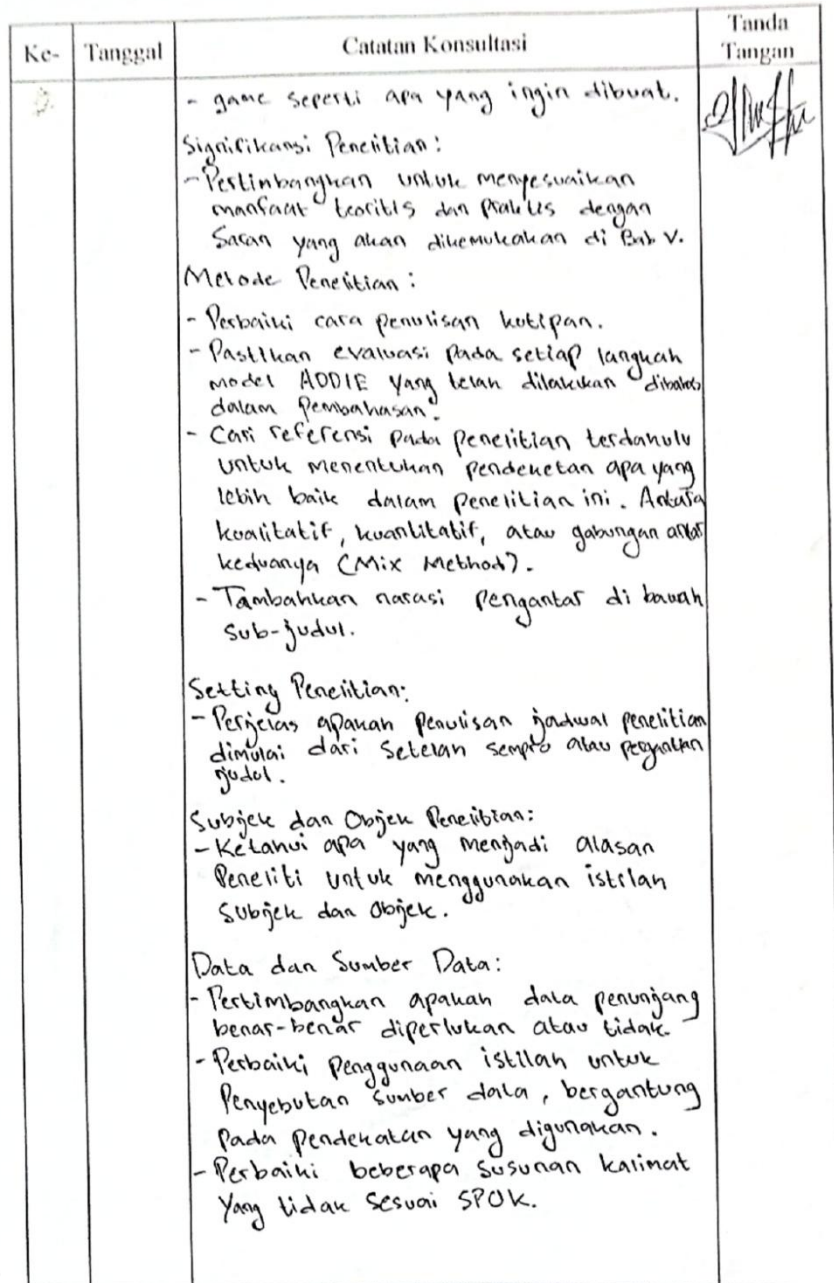 Ke- Tanggal Catatan Konsultasi Tanda Tangan
- game seperti apa yang ingin dibuat.
Signifikansi Penelitian:
- Pertimbangkan untuk menyesuaikan
manfaat teoritis dan praktis dengan
Saran yang akan dikemukakan di Bab V.
Metode Penelitian:
- Perbaiki cara penulisan kutipan.
- Pastikan evaluasi pada setiap langkah
model ADDIE yang telah dilakukan dibahas
dalam pembahasan.
- Cari referensi pada penelitian terdahulu
untuk menentukan pendekatan apa yang
lebih baik dalam penelitian ini. Antara
kualitatif, kuantitatif, atau gabungan antar
keduanya (Mix Method).
- Tambahkan narasi pengantar di bawah
sub-judul.
Setting Penelitian:
- Perjelas apakah penulisan jadwal penelitian
dimulai dari setelah sempro atau pergantian
judul.
Subjek dan Objek Penelitian:
- Ketahui apa yang menjadi alasan
Peneliti untuk menggunakan istilah
Subjek dan Objek.
Data dan Sumber Data:
- Pertimbangkan apakah data penunjang
benar-benar diperlukan atau tidak.
- Perbaiki penggunaan istilah untuk
Penyebutan sumber data, bergantung
pada pendekatan yang digunakan.
- Perbaiki beberapa susunan kalimat
Yang tidak sesuai SPOK.